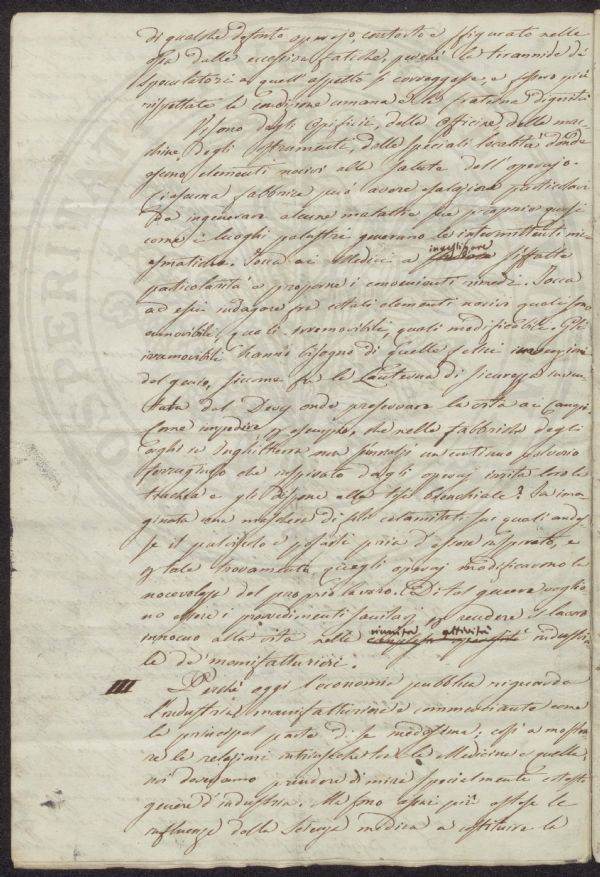 di qualche defonto operajo, contorto e sfigurato nelle
ossa dalle eccessive fatiche, perchè la tirannide de'
speculatori a quell'aspetto si correggesse, e fosse più
rispettata la condizione umana e la fraterna dignità
Vi sono degli Opificii, delle Officine, delle mac-
chine, degli Istrumenti, delle speciali località donde
escono elementi nocivi alla salute dell'operajo.
Ciascuna fabbrica può avere esalazioni particolari
da ingenerare alcune malattie sue proprie quasi
come i luoghi palustri generano le intermittenti mi-
asmatiche. Tocca ai Medici a investigare siffatte
particolarità e proporne i convenienti rimedi. Tocca
ad essi indagare fra cotali elementi nocivi quali sono
removibili, quali irremovibili, quali modificabili. Gli
irremovibili hanno bisogno di quelle felici invenzioni
del genio, siccome fu la Lanterna di sicurezza inven-
tata dal Davy onde preservare la vita ai
Come impedire p. esempio, che nelle fabbriche degli
aghi in Inghilterra non s'innalzi un continuo polverio
ferruginoso che inspirato dagli operaj irrita loro la
trachea e gli dispone alla tisi bronchiale? Fu ima-
ginata una maschera di fili calamitati sui quali andas-
se il pulviscolo a posarsi pria d'essere inspirato, e
p. tale trovamento quegli operaj modificarono la
nocevolezza del proprio lavoro. Di tal genere voglio-
no essere i provvedimenti sanitarj p. rendere il lavoro
innocuo alla vita nelle riunite attività industria-
le de' manifatturieri.
III Perchè oggi l'economia pubblica riguarda
l'industria manifatturiera e commerciante come
la principal parte di se medesima; così a mostra-
re le relazioni intrinseche tra la Medicina e quella,
noi dovevamo prendere di mira specialmente cotesto
genere d'industria. Ma sono assai più estese le
influenze della Scienza medica a costituire la